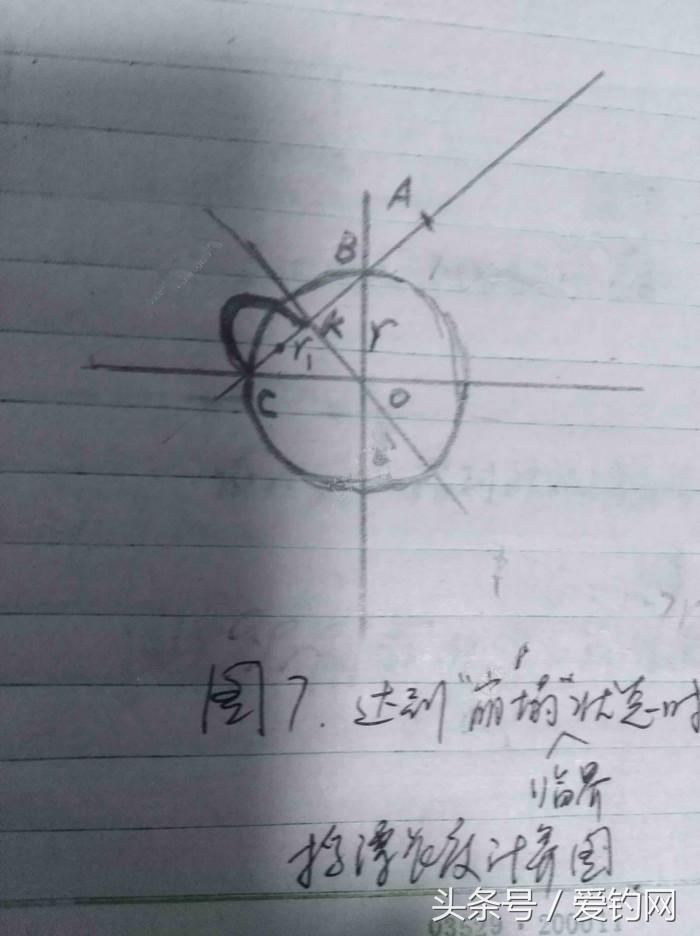 A
B
K
r
r₁
C
O
图7. 达到“崩塌”状态时
临界
漂 计算图
头条号 / 爱钓网